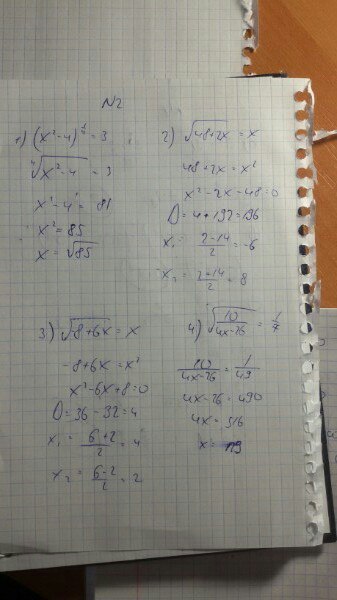 N2
1) (x²-4)^¼ = 3
⁴√(x²-4) = 3
x²-4 = 81
x² = 85
x = √85
2) √(48+2x) = x
48+2x = x²
x²-2x-48=0
D = 4+192=196
x₁ = (2-14)/2 = -6
x₂ = (2+14)/2 = 8
3) √(-8+6x) = x
-8+6x = x²
x²-6x+8=0
D=36-32=4
x₁ = (6+2)/2 = 4
x₂ = (6-2)/2 = 2
4) √(10/(4x-26)) = 1/7
10/(4x-26) = 1/49
4x-26=490
4x = 516
x = 129